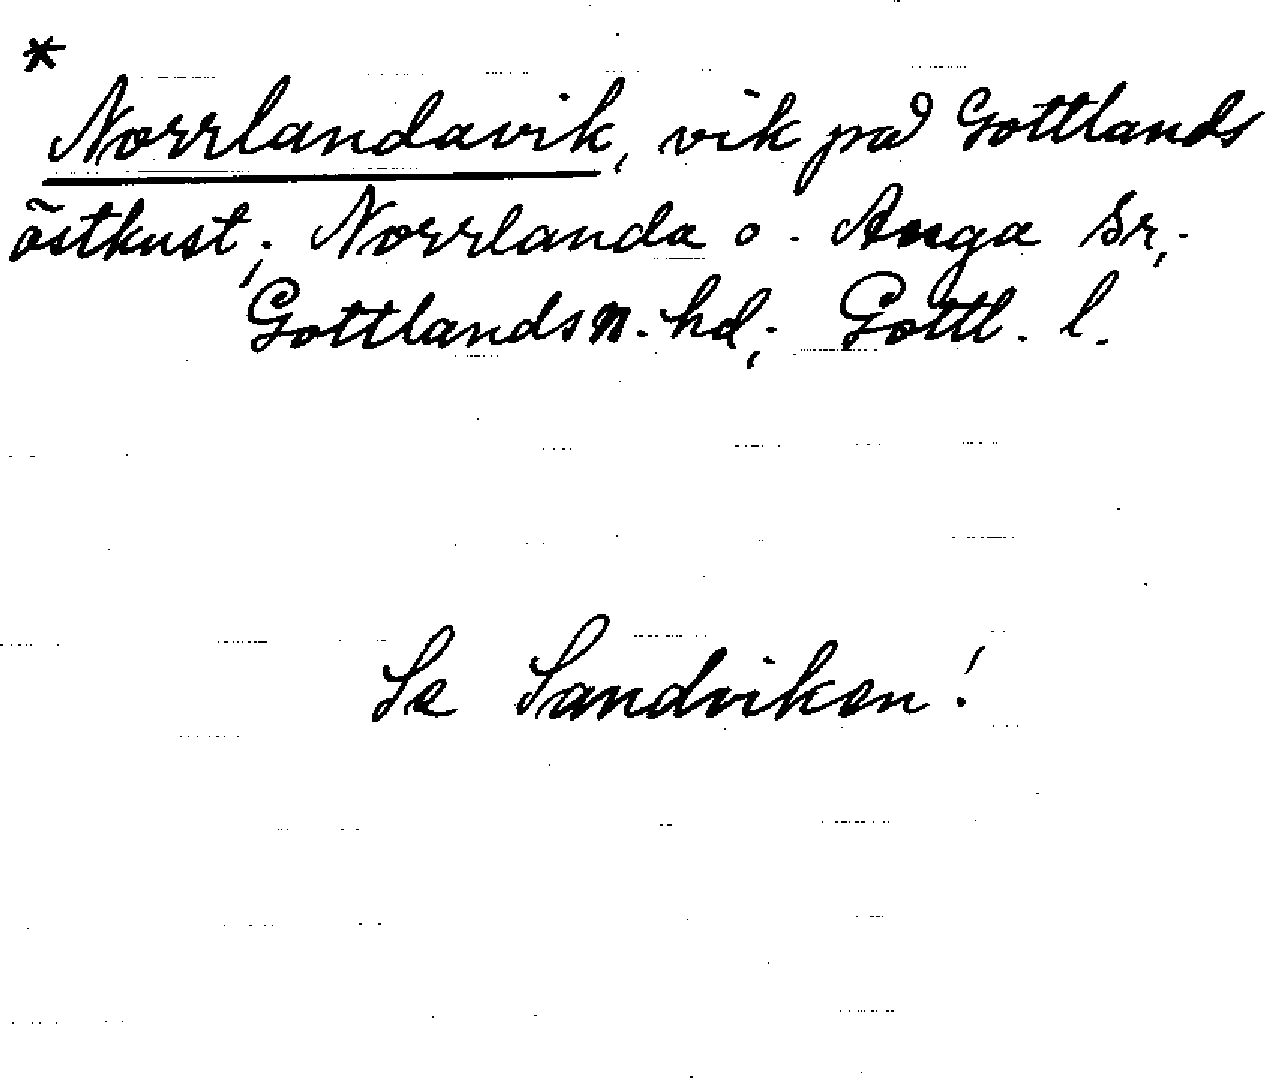 *
Norrlandavik, vik på Gottlands
östkust; Norrlanda o. Anga sr,.
Gottlands n. hd,. Gottl. l.
Se Sandviken!